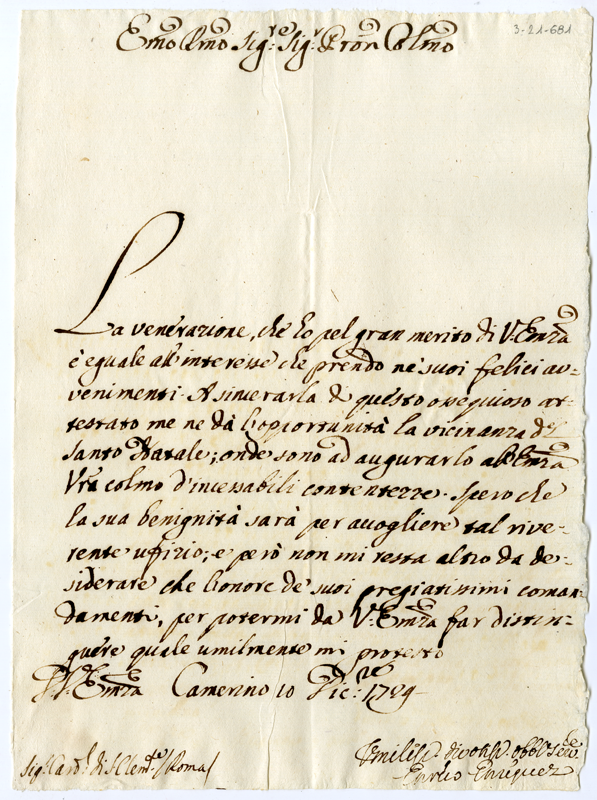 3-21-681
Emo Rmo Sig.re Sig.r Pron Colmo
La venerazione, che ho pel gran merito di V.Emza
è eguale all'interesse che prendo ne' suoi felici av-
venimenti. A sincerarla di questo ossequioso at-
testato me ne dà l'opportunità la vicinanza del
Santo Natale; onde sono ad augurarlo all'Emza
Vra colmo d'incessabili contentezze. Spero che
la sua benignità sarà per accogliere tal rive-
rente ufizio; e però non mi resta altro da de-
siderare che l'onore de' suoi pregiatissimi coman-
damenti, per potermi da V.Emza far distin-
guere quale umilmente mi protesto
D.V.Emza Camerino 10 Dic.re 1729
Sig.r Card.l di S.Clem.te /Roma/
Umiliss. divotiss. obbl. Se.re
Enrico Enriquez